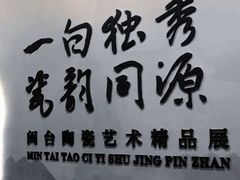 一白独秀
瓷韵同源
闽台陶瓷艺术精品展
MIN TAI TAO CI YI SHU JING PIN ZHAN